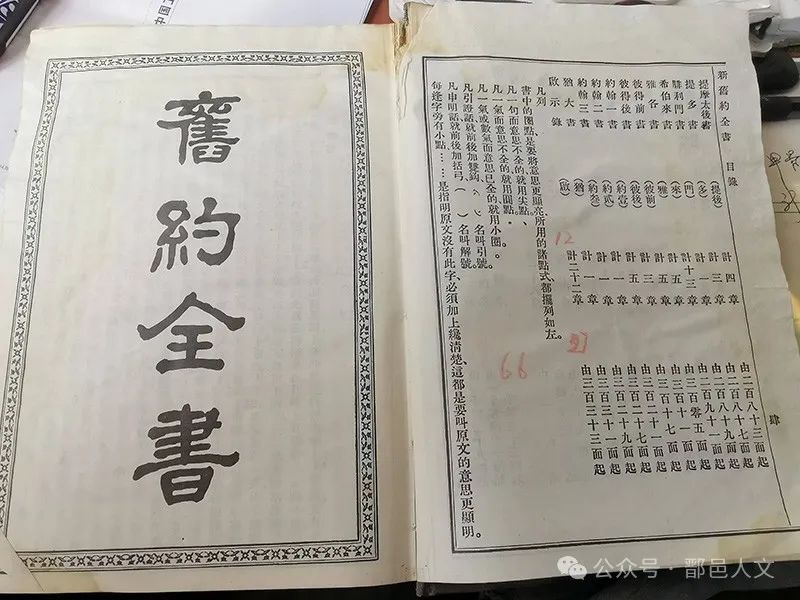 新舊約全書 目錄 肆
提摩太後書 (提後) 計四章 由二百八十三面起
提多書 (多) 計三章 由二百八十七面起
腓利門書 (門) 計一章 由二百八十九面起
希伯來書 (來) 計十三章 由二百九十一面起
雅各書 (雅) 計五章 由三百零五面起
彼得前書 (彼前) 計五章 由三百十一面起
彼得後書 (彼後) 計三章 由三百十七面起
約翰一書 (約壹) 計五章 由三百二十一面起
約翰二書 (約貳) 計一章 由三百二十七面起
約翰三書 (約叁) 計一章 由三百二十九面起
猶大書 (猶) 計一章 由三百三十一面起
啟示錄 (啟) 計二十二章 由三百三十三面起
12
27
66
凡列
書中的圈點、是要將意思更顯亮、所用的諸點式、都擺列如左。
凡一句而意思不全的、就用尖點、
凡一氣而意思不全的、就用圓點．
凡一氣或數氣而意思已全的、就用小圈。
凡引證話、就前後加雙鈎、名叫引號。
凡申明話、就前後加括弓、( ) 名叫解號。
每逢字旁有小點……是指明原文沒有此字、必須加上纔清楚、這都是要叫原文的意思更顯明。
舊約全書
中國
公众号·鄑邑人文